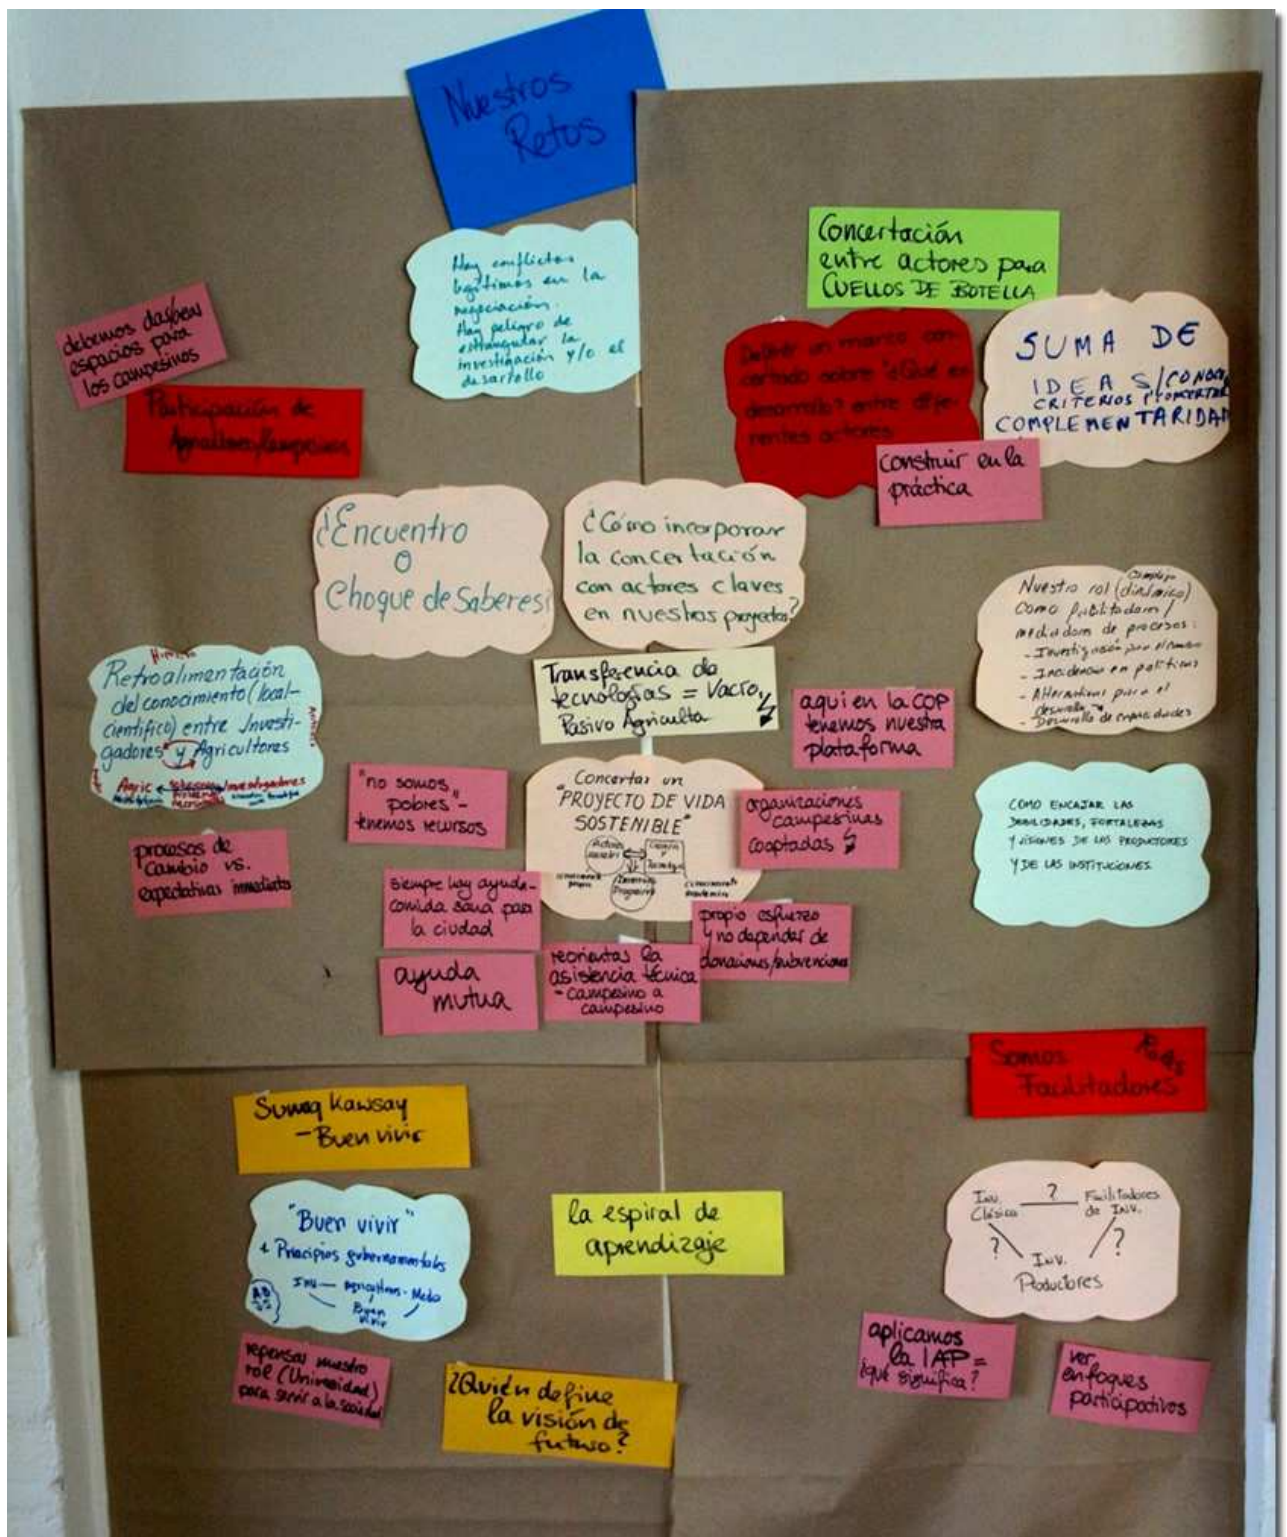 Nuestros
Retos
Hay conflictos
legítimos en la
negociación.
Hay peligro de
estrangular la
investigación y/o el
desarrollo
Concertación
entre actores para
CUELLOS DE BOTELLA
debemos
espacios para
los campesinos
Participación de
Definir un marco con-
certado sobre "¿Qué es
desarrollo? entre dife-
rentes actores
SUMA DE
IDEAS/CONOC
CRITERIOS
COMPLEMENTARIDAD
construir en la
práctica
¿Encuentro
O
Choque de Saberes?
¿Cómo incorporar
la concertación
con actores claves
en nuestros proyectos?
Nuestro rol (dinámico)
como facilitadores/
mediadores de procesos:
- Incidencia en políticas
- Alternativas para el
desarrollo
- Desarrollo de capacidades
Retroalimentación
del conocimiento (local-
científico) entre Investi-
gadores y Agricultores
Agric investigadores
Transferencia de
tecnologías = Vacío,
Pasivo Agriculta
aqui en la COP
tenemos nuestra
plataforma
"no somos
pobres" -
tenemos recursos
Concertar un
"PROYECTO DE VIDA
SOSTENIBLE"
organizaciones
campesinas
cooptadas
COMO ENCAJAR LAS
DEBILIDADES, FORTALEZAS
Y VISIONES DE LOS PRODUCTORES
Y DE LAS INSTITUCIONES.
procesos de
cambio vs.
expectativas inmediatas
siempre hay ayuda-
comida sana para
la ciudad
propio esfuerzo
y no depender de
donaciones/subvenciones
ayuda
mutua
reorientar la
asistencia técnica
- campesino a
campesino
Somos
Facilitadores
Sumaq Kawsay
- Buen vivir
"Buen vivir"
+ Principios gubernamentales
Buen
vivir
la espiral de
aprendizaje
Inv. ? Facilitadores
Clásica de Inv.
? ?
Inv.
Productores
repensar nuestro
rol (Universidad)
para servir a la sociedad
¿Quién define
la visión de
futuro?
aplicamos
la IAP =
¿qué significa?
ver
enfoques
participativos